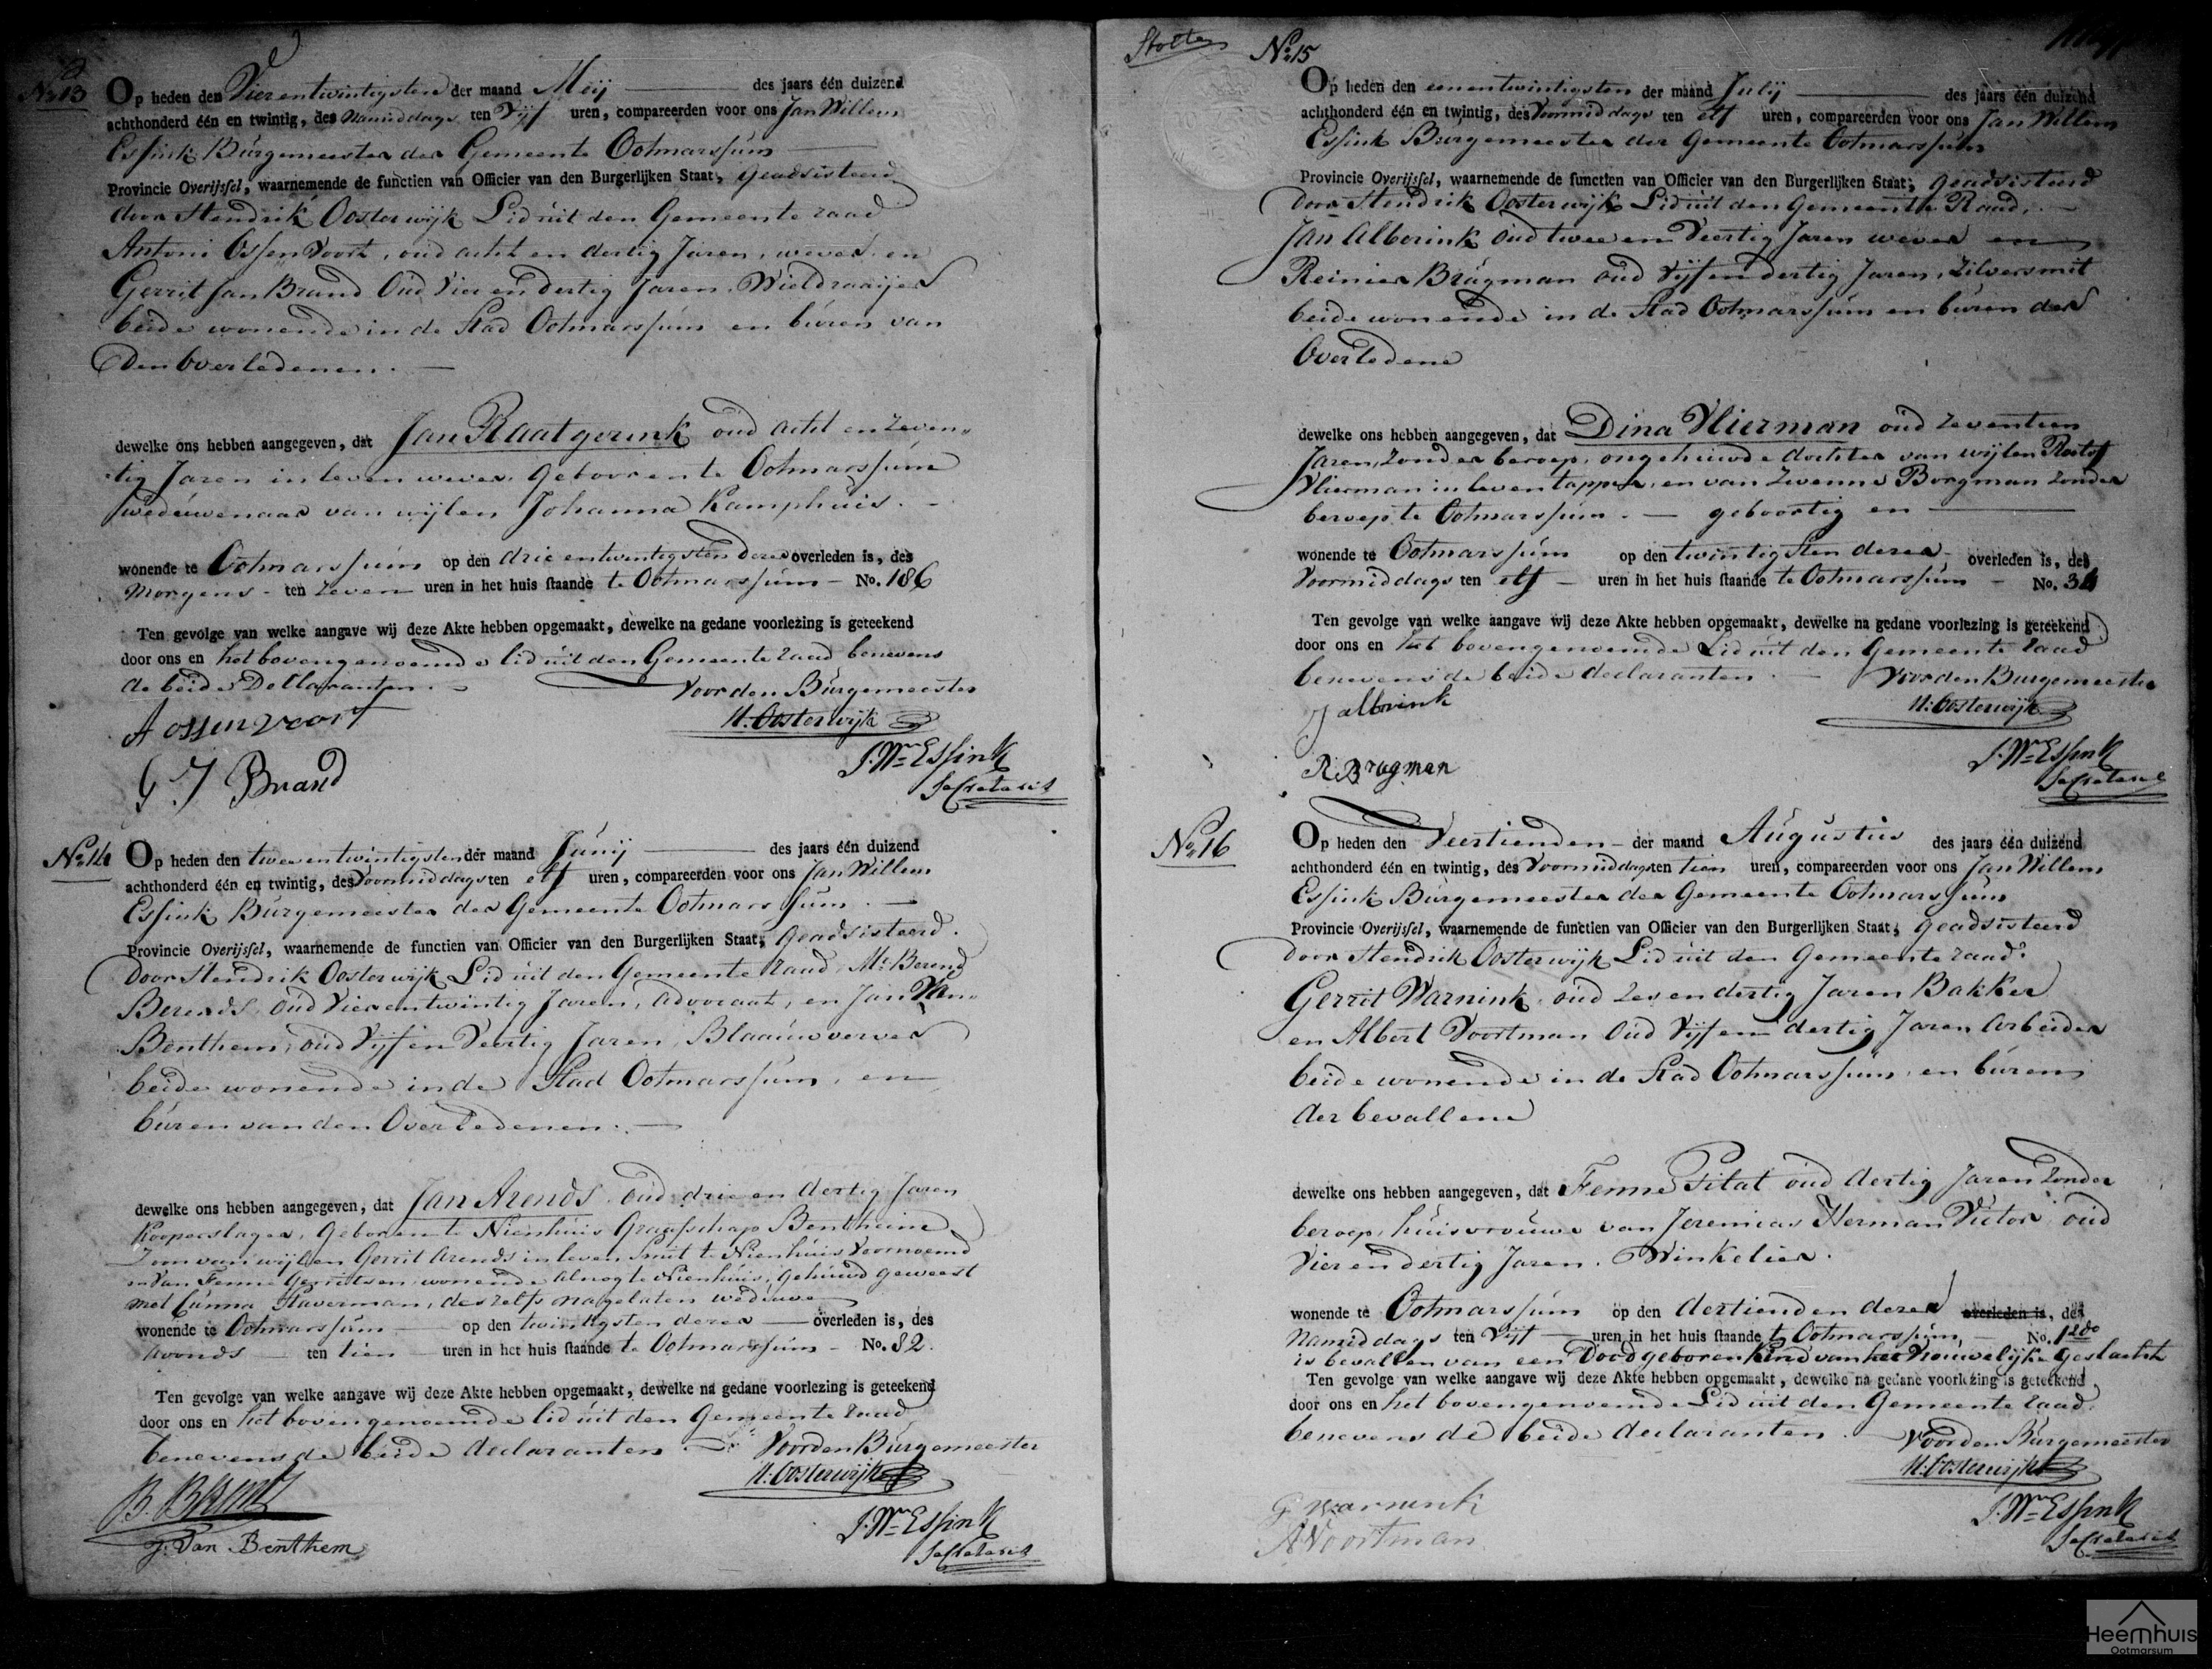 No 13
Op heden den Vierentwintigsten der maand Meij des jaars één duizend
achthonderd één en twintig, des Namiddags ten Vijf uren, compareerden voor ons Jan Willem
Essink Burgemeester der Gemeente Ootmarssum
Provincie Overijssel, waarnemende de functien van Officier van den Burgerlijken Staat, geadsisteerd
door Hendrik Oosterwijk Lid uit den Gemeente raad
Antoni Ossenvoort, oud acht en dertig Jaren, wever en
Gerrit Jan Brand Oud Vier en dertig Jaren, Wieldraaijer
beide wonende in de Stad Ootmarssum en buren van
den Overledenen.
dewelke ons hebben aangegeven, dat Jan Raatgerink oud acht en zeven-
tig Jaren in leven wever, geboren te Ootmarssum
weduwenaar van wijlen Johanna Kamphuis.
wonende te Ootmarssum op den drie entwintigsten dezer overleden is, des
Morgens ten zeven uren in het huis staande te Ootmarssum No. 186
Ten gevolge van welke aangave wij deze Akte hebben opgemaakt, dewelke na gedane voorlezing is geteekend
door ons en het bovengenoemde lid uit den Gemeente raad benevens
de beide Declaranten.
Voor den Burgemeester
A ossenvoort
H. Oosterwijk
G J Brand
J. Wm Essink
Secretaris
No 14
Op heden den tweeentwintigsten der maand Junij des jaars één duizend
achthonderd één en twintig, des Voormiddags ten elf uren, compareerden voor ons Jan Willem
Essink Burgemeester der Gemeente Ootmarssum
Provincie Overijssel, waarnemende de functien van Officier van den Burgerlijken Staat, geadsisteerd
door Hendrik Oosterwijk Lid uit den Gemeente raad, Mr Berend
Berends, oud Vierentwintig Jaren, advocaat, en Jan Van
Benthem, oud Vijf en Veertig Jaren, Blaauwverver
beide wonende in de Stad Ootmarssum, en
buren van den Overledenen.
dewelke ons hebben aangegeven, dat Jan Arends oud drie en dertig Jaren
Koperslager, Geboren te Nienhuis Graafschap Bentheim
Zoon van wijlen Gerrit Arends in leven Smit te Nienhuis Voornoemd
en van Fenne Gerritsen, wonende alnog te Nienhuis, gehuwd geweest
met Staverman, deszelfs nagelaten weduwe
wonende te Ootmarssum op den twintigsten dezer overleden is, des
avonds ten tien uren in het huis staande te Ootmarssum No. 82.
Ten gevolge van welke aangave wij deze Akte hebben opgemaakt, dewelke na gedane voorlezing is geteekend
door ons en het bovengenoemde lid uit den Gemeente raad
benevens de beide declaranten
Voor den Burgemeester
H. Oosterwijk
J. Van Benthem
J. Wm Essink
Secretaris
Stolte
No 15
Op heden den eenentwintigsten der maand Julij des jaars één duizend
achthonderd één en twintig, des Voormiddags ten elf uren, compareerden voor ons Jan Willem
Essink Burgemeester der Gemeente Ootmarssum
Provincie Overijssel, waarnemende de functien van Officier van den Burgerlijken Staat, geadsisteerd
door Hendrik Oosterwijk Lid uit den Gemeente Raad,
Jan Alberink oud twee en Veertig Jaren wever en
Reinier Brugman oud Vijf en dertig Jaren, Zilversmit
beide wonende in de Stad Ootmarssum en buren der
Overledene
dewelke ons hebben aangegeven, dat Dina Vlierman oud zeventien
Jaren, zonder beroep, ongehuwde dochter van wijlen Roelof
Vlierman in leven tapper, en van Zwenne Borgman zonder
beroep te Ootmarssum. geboortig en
wonende te Ootmarssum op den twintigsten dezer overleden is, des
Voormiddags ten elf uren in het huis staande te Ootmarssum No. 34
Ten gevolge van welke aangave wij deze Akte hebben opgemaakt, dewelke na gedane voorlezing is geteekend
door ons en het bovengenoemde Lid uit den Gemeente raad
benevens de beide declaranten.
Voor den Burgemeester
J alberink
H. Oosterwijk
R. Brugman
J. Wm Essink
Secretaris
No 16
Op heden den Veertienden der maand Augustus des jaars één duizend
achthonderd één en twintig, des Voormiddags ten tien uren, compareerden voor ons Jan Willem
Essink Burgemeester der Gemeente Ootmarssum
Provincie Overijssel, waarnemende de functien van Officier van den Burgerlijken Staat, geadsisteerd
door Hendrik Oosterwijk Lid uit den Gemeente raad.
Gerrit Warnink oud zes en dertig Jaren Bakker
en Albert Voortman Oud Vijf en dertig Jaren Arbeider
beide wonende in de Stad Ootmarssum en buren
der bevallene
dewelke ons hebben aangegeven, dat Fenne Pilat oud dertig Jaren zonder
beroep, huisvrouwe van Jeremias Herman Victor oud
Vier en dertig Jaren. Winkelier.
wonende te Ootmarssum op den dertienden dezer overleden is, des
Namiddags ten Vijf uren in het huis staande te Ootmarssum, No.
is bevallen van een Doodgeboren Kind van het Vrouwelijke Geslacht
Ten gevolge van welke aangave wij deze Akte hebben opgemaakt, dewelke na gedane voorlezing is geteekend
door ons en het bovengenoemde Lid uit den Gemeente raad
benevens de beide declaranten.
Voor den Burgemeester
H. Oosterwijk
G Warnink
J. Wm Essink
A Voortman
Secretaris
Heemhuis
Ootmarsum